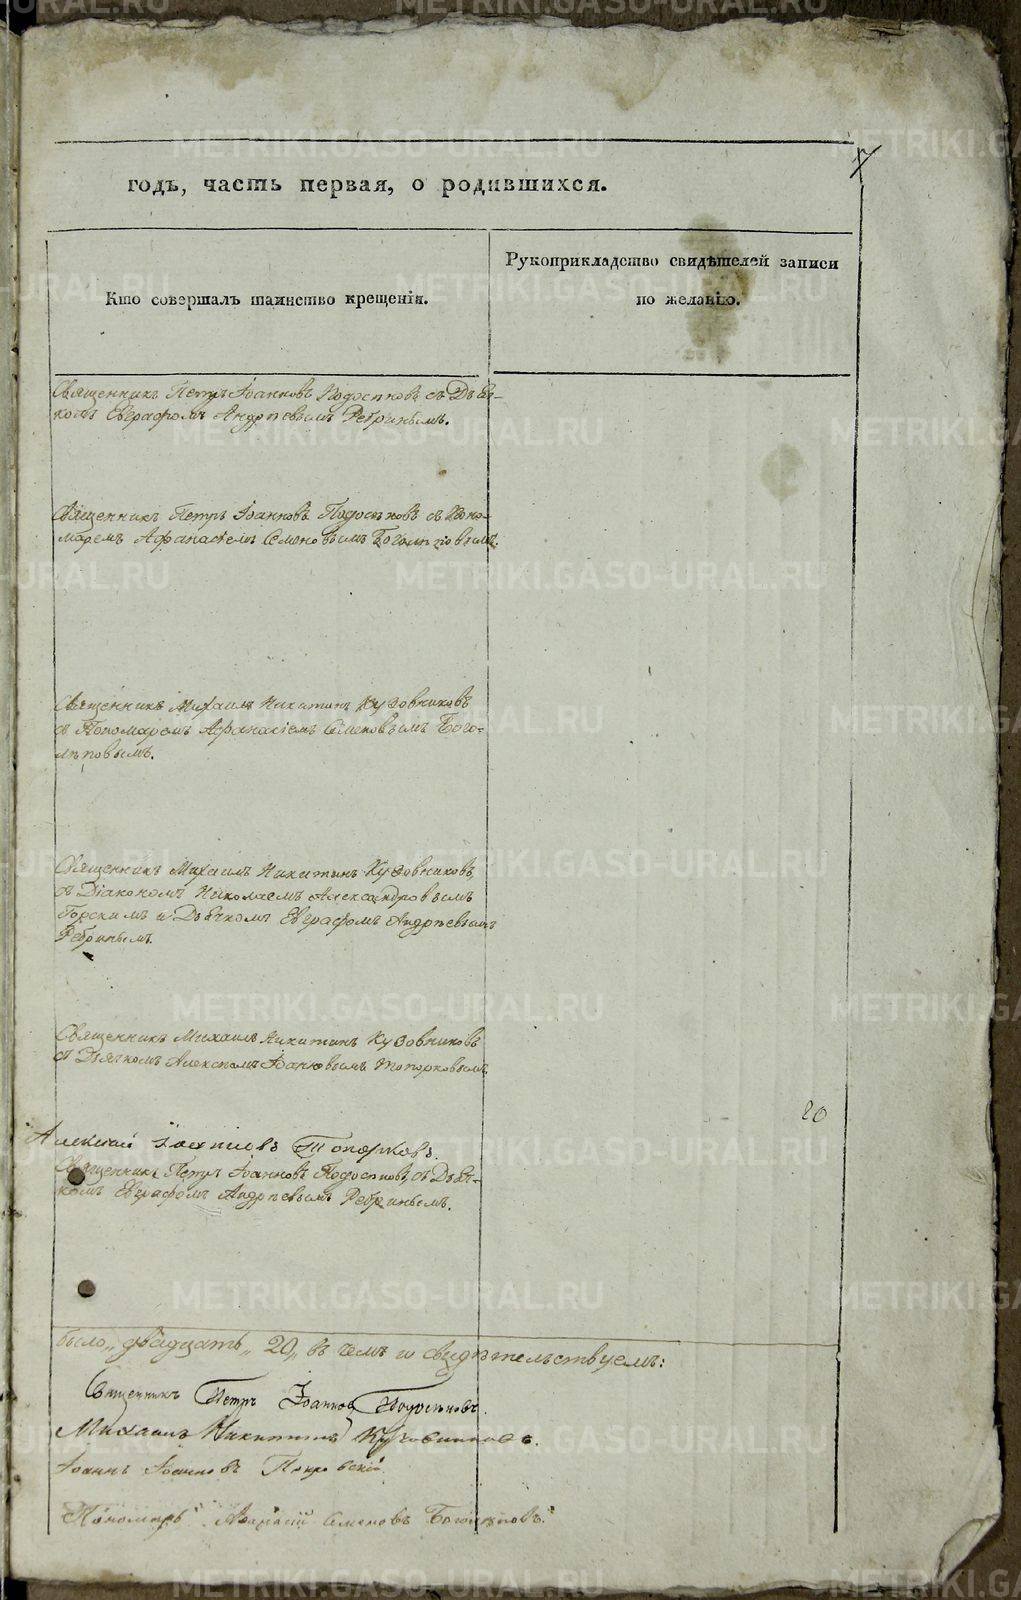 годъ, часть первая, о родившихся.
Кто совершалъ таинство крещенія.
Рукоприкладство свидѣтелей записи
по желанію.
Священникъ Петръ Іоанновъ Подосеновъ съ Дьяч-
комъ Евграфомъ Андреевымъ Ребринымъ.
Священникъ Петръ Іоанновъ Подосеновъ съ Поно-
маремъ Афанасіемъ Семеновымъ Боголѣповымъ.
Священникъ Михаилъ Никитинъ Кузовниковъ
съ Пономаремъ Афанасіемъ Семеновымъ Бого-
лѣповымъ.
Священникъ Михаилъ Никитинъ Кузовниковъ,
съ Діакономъ Николаемъ Александровымъ
Горскимъ и Дьячкомъ Евграфомъ Андреевымъ
Ребринымъ.
Священникъ Михаилъ Никитинъ Кузовниковъ
съ Дьячкомъ Алексѣемъ Іоанновымъ Топорковымъ
20
Алексей Топорковъ.
Священникъ Петръ Іоанновъ Подосеновъ, съ Дьяч-
комъ Евграфомъ Андреевымъ Ребринымъ.
было „двадцать„ 20„ въ чемъ и свидѣтельствуемъ:
Священникъ Петръ Іоанновъ Подосеновъ.
Михаилъ Никитинъ Кузовниковъ.
Іоаннъ Іоанновъ Покровскій
Пономарь Афанасій Семеновъ Боголѣповъ.
METRIKI.GASO-URAL.RU